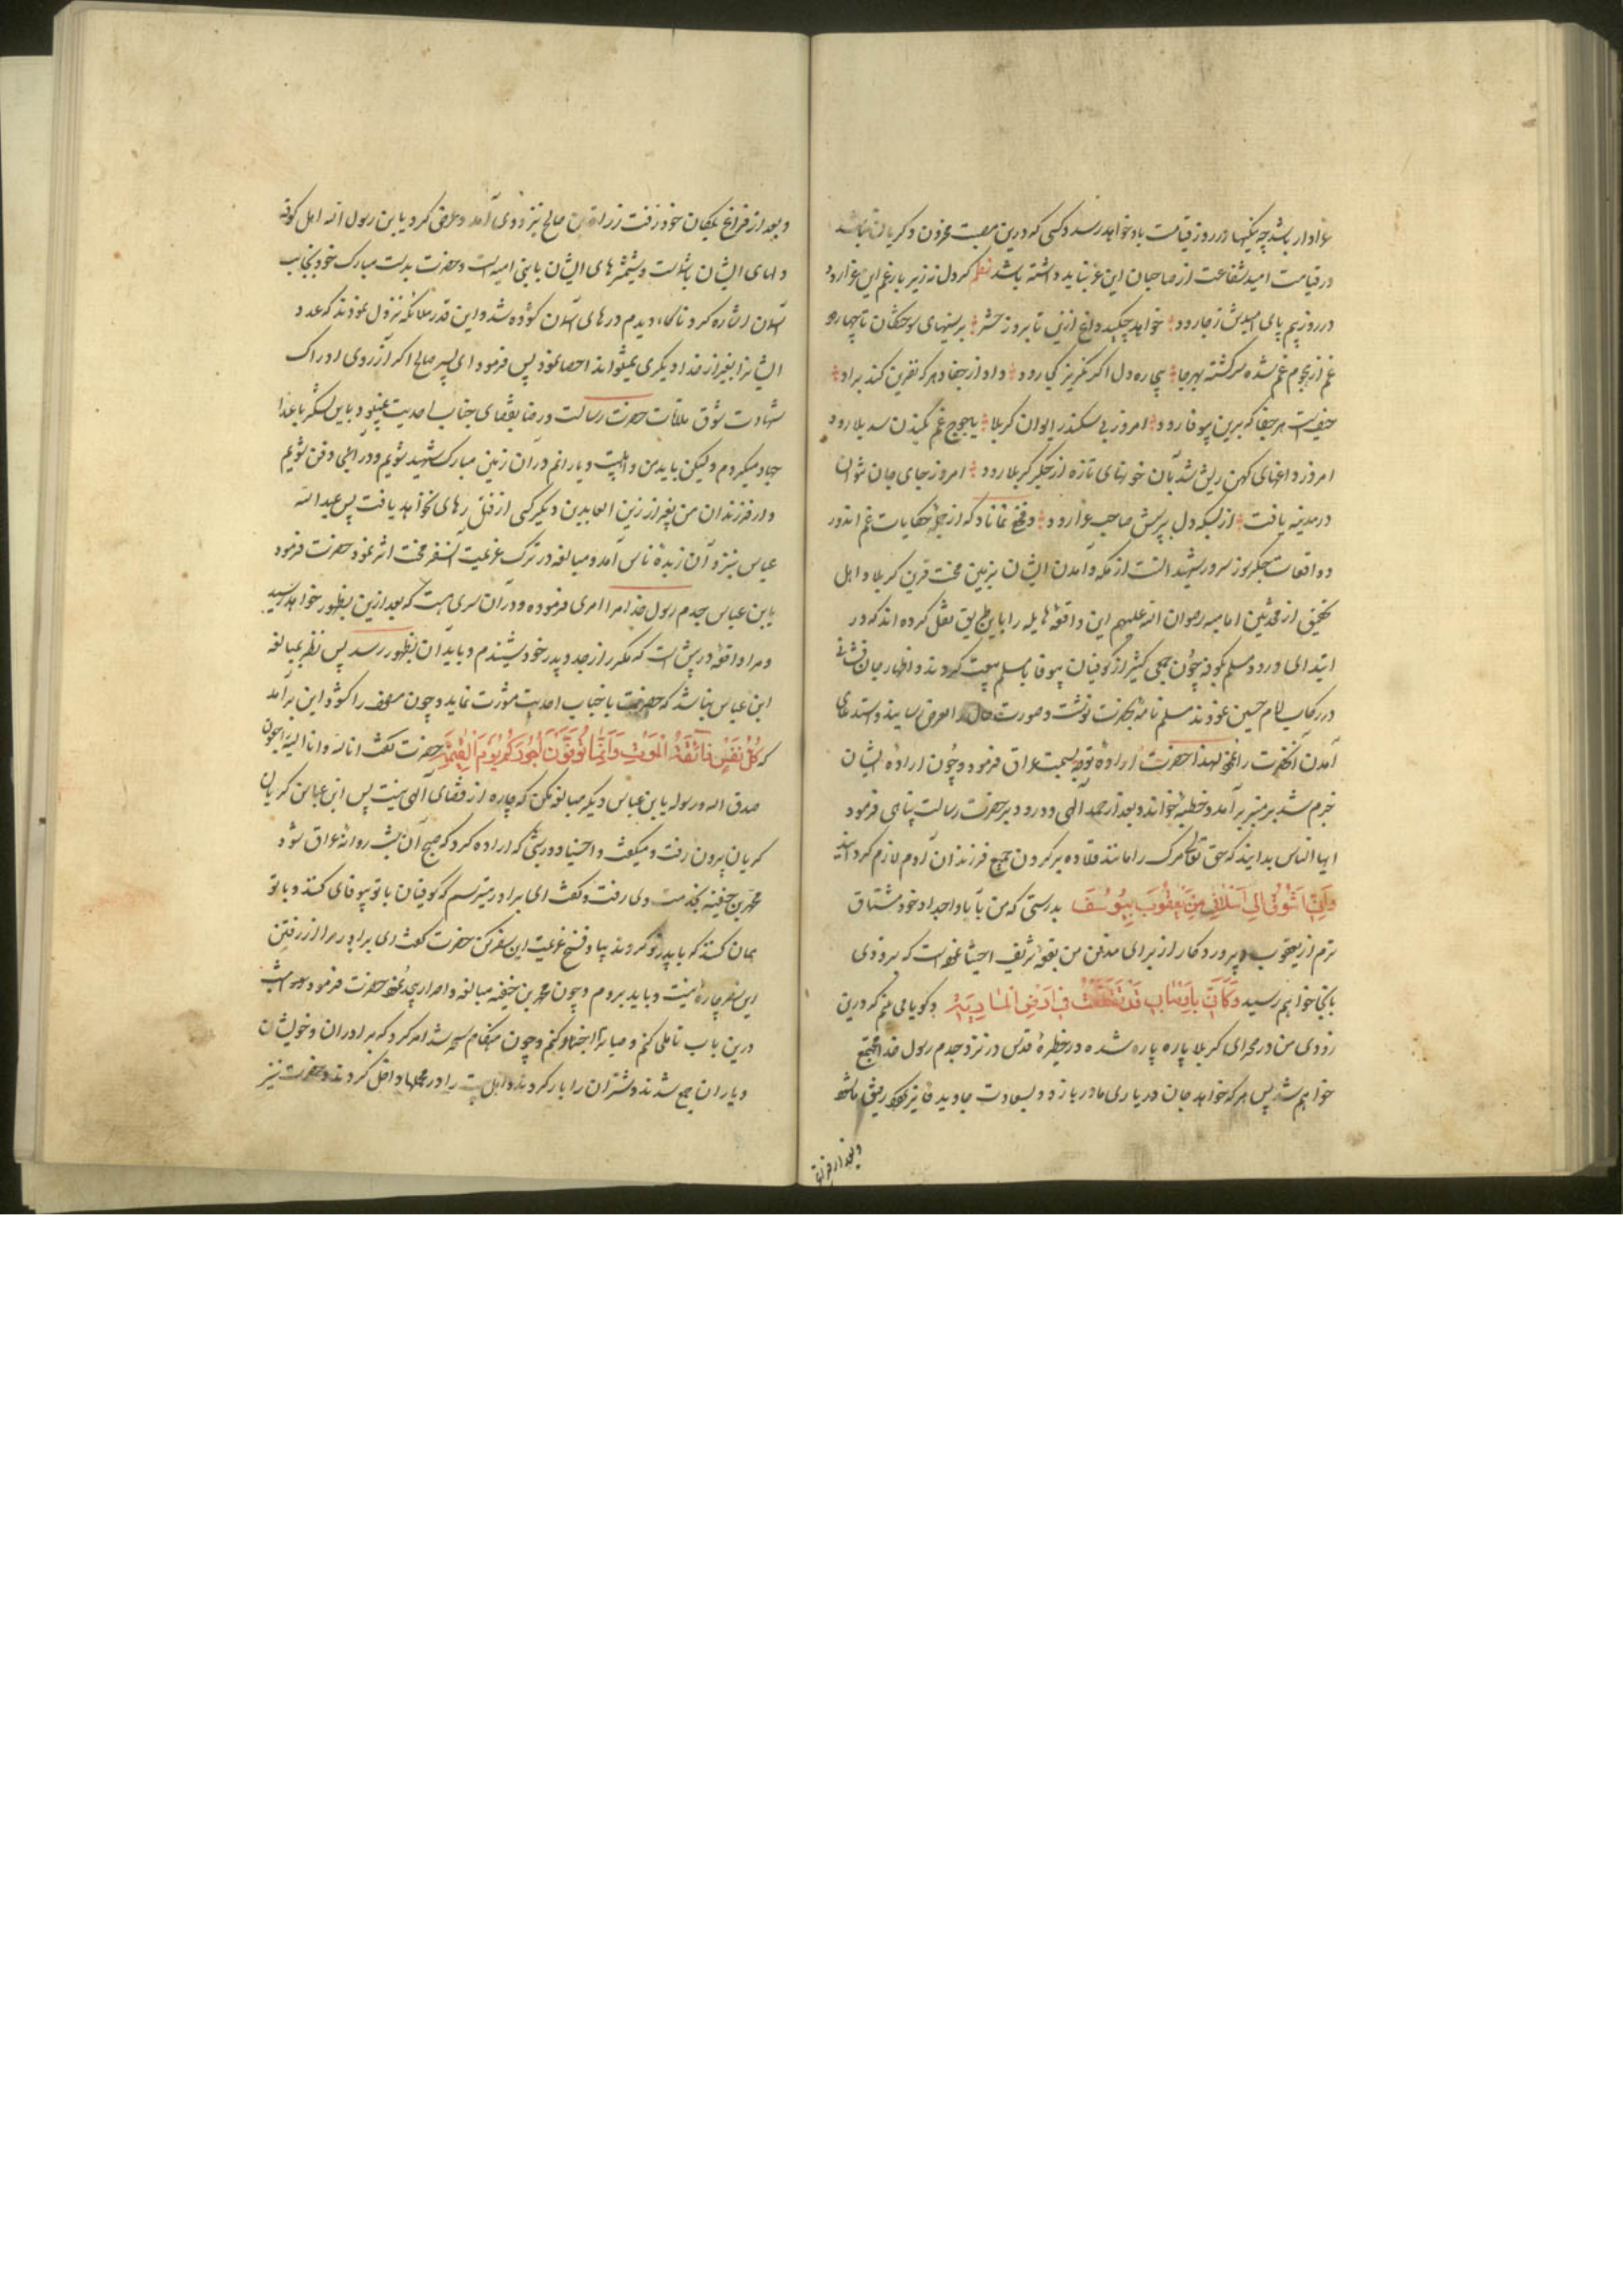 عزادار باشد چه نیکیها در روز قیامت باو خواهد رسد و کسی که درین مصیبت محزون و گریان نباشد
در قیامت امید شفاعت از صاحبان این عزا نباید داشته باشد نظم گر دل نه زیر بار غم این عزا رود
در روز بیم پای امیدش ز جا رود خواهد چکید داغ ازین تا بروز حشر بر سینهای سوختگان تا چها رود
غم از هجوم غم شده سرگشته بهر جا بیچاره دل اگر نگریزد کجا رود داد از جفا دهر که نفرین کند براو
حیف است هر جفا که برین بیوفا رود امروز بی سکندر ایوان کربلا یاجوج غم بکندن سد بلا رود
امروز داغهای کهن ریش شد بآن خونهای تازه از جگر کربلا رود امروز جای جان نتوان
در مدینه یافت از بسکه دل بپرسش صاحب عزا رود مخفی نماناد که از جمله حکایات غم اندوز
و واقعات جگرسوز سرور شهدا است از مکه و آمدن ایشان بزمین محنت قرین کربلا و اهل
تحقیق از محدثین امامیه رضوان الله علیهم این واقعه هایله را باین طریق نقل کرده اند که در
ابتدای ورود مسلم بکوفه چون جمعی کثیر از کوفیان بیوفا با مسلم بیعت کردند و اظهار جان فشانی
در رکاب امام حسین نمودند مسلم نامه بحضرت نوشت و صورت حال را بعرض رسانید و استدعای
آمدن آنحضرت را نمود لهذا حضرت اراده توجه بسمت عراق فرمود و چون اراده ایشان
جزم شد بر منبر برآمد و خطبه خواند و بعد از حمد الهی و درود بر حضرت رسالت پناهی فرمود
ایها الناس بدانید که حق تعالی مرگ را مانند قلاده بر گردن جمیع فرزندان آدم لازم گردانید
وَاِنّی اَشْوَقُ اِلی اَسْلافی مِنْ یَعْقُوبَ بِیُوسُفَ بدرستی که من بآباء و اجداد خود مشتاق
ترم از یعقوب و پروردگار از برای مدفن من بقعه شریف اختیار نموده است که بزودی
بآنجا خواهم رسید وَکَاَنّی بِاَوْصالی قَدْ تَقَطَّعَتْ فی اَرْضِ و گویا می بینم که درین
زودی من در صحرای کربلا پاره پاره شده در حظیره قدس در نزد جدم رسول خدا مجتمع
خواهم شد پس هر که خواهد جان در یاری ما در بازد و بسعادت جاوید فایز گردد رفیق ما شود
و بعد از فراغ
و بعد از فراغ بمکان خود رفت زراره بن صالح بنزد وی آمد و عرض کرد یابن رسول الله اهل کوفه
دلهای ایشان با شماست و شمشیرهای ایشان با بنی امیه است و حضرت بدست مبارک خود بجانب
آسمان اشاره کرد ناگاه دیدم درهای آسمان گشوده شد و این قدر ملائکه نزول نمودند که عدد
ایشانرا بغیر از خدا دیگری نمیتواند احصا نمود پس فرمود ای پسر صالح اگر آرزوی ادراک
شهادت شوق ملاقات حضرت رسالت و رضا بقضای جناب احدیت نمیبود باین لشکر با اعدا
جهاد میکردم و لیکن باید من و اهلبیت و یارانم در آن زمین مبارک شهید شویم و در آنجا دفن شویم
و از فرزندان من بغیر از زین العابدین دیگر کسی از قتل رهای نخواهد یافت پس عبدالله
عباس بنزد آن زبده ناس آمد و مبالغه در ترک عزیمت آنسفر محنت اثر نمود حضرت فرمود
یابن عباس جدم رسول خدا مرا امری فرموده و در آن سری هست که بعد ازین بظهور خواهد رسید
و مرا واقعه در پیش است که مکرر از جد و پدر خود شنیدم و باید آن بظهور رسد پس نظر بمبالغه
ابن عباس بنا شد که حضرت با جناب احدیت مشورت نماید و چون مصحف را گشود این برآمد
که کُلُّ نَفْسٍ ذائِقَةُ الْمَوْتِ وَاِنَّما تُوَفَّوْنَ اُجُورَکُمْ یَوْمَ الْقِیمَةِ حضرت گفت انا لله و انا الیه راجعون
صدق الله و رسوله یابن عباس دیگر مبالغه مکن که چاره از قضای الهی نیست پس ابن عباس گریان
گریان بیرون رفت و میگفت وا حسینا و در شبی که اراده کرد که صبح آن شب روانه عراق شود
محمد بن حنفیه بخدمت وی رفت و گفت ای برادر میترسم که کوفیان با تو بیوفای کنند و با تو
همان کنند که با پدر تو کردند بیا و فسخ عزیمت این سفر کن حضرت گفت ای برادر مرا از رفتن
این سفر چاره نیست و باید بروم و چون محمد بن حنفیه مبالغه و اصرار بیحد نمود حضرت فرمود امشب
درین باب تاملی کنم و چون هنگام سحر شد امر کرد که برادران و خویشان
و یاران جمع شدند و شتران را بار کردند و اهل بیت را در محملها داخل کردند و حضرت نیز